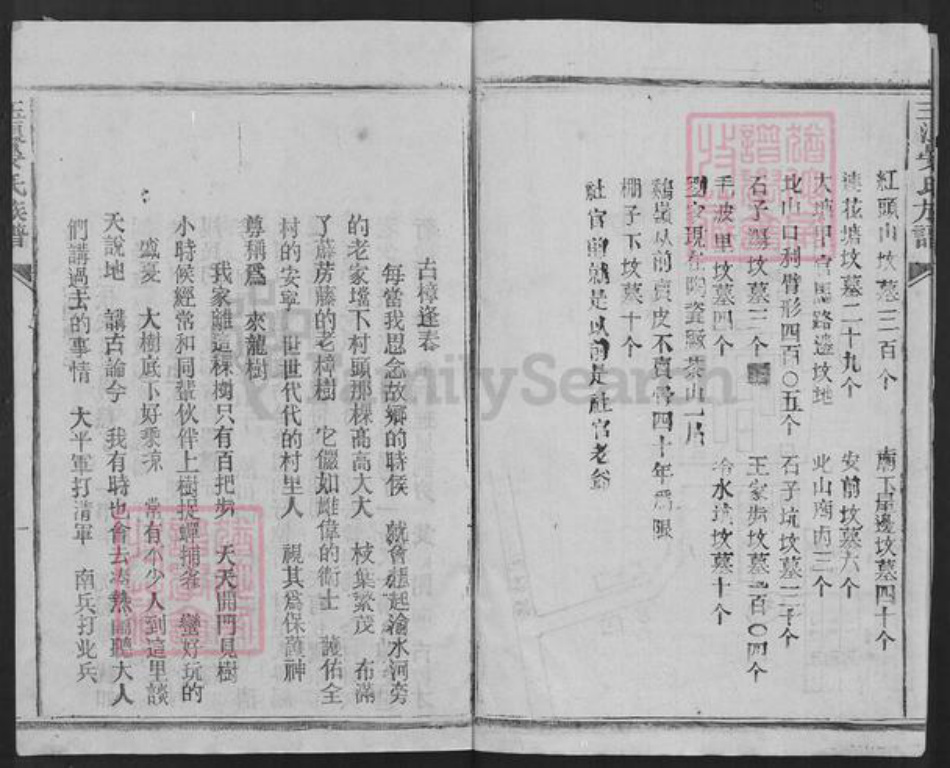 紅頭山坟墓三百个 廟下屋邊坟墓四十个
蓮花塘坟墓二十九个 安前坟墓六个
大塘甲官馬路邊坟地 北山南内三个
北山口利臂形四百〇五个 石子坑坟墓二千个
石子 坟墓三个 王家歩坟墓 百〇四个
毛波里坟墓四个 冷水坑坟墓十个
現在 茶山一片
鷄嶺从前賣皮不賣骨四十年為限
棚子下坟墓十个
社官前就是以前是社官老爺
古樟逢春
每當我思念故鄉的時候 就會想起渝水河旁
的老家壋下村頭那棵高高大大 枝葉繁茂 布滿
了薜房藤的老樟樹 它儼如雄偉的衛士 護佑全
村的安寧 世世代代的村里人 視其為保護神
尊稱為 來龍樹
我家離這棵樹只有百把步 天天開門見樹
小時候經常和同輩伙伴上樹捉蟬捕雀 蠻好玩的
盛夏 大樹底下好乘凉 常有不少人到這里談
天說地 講古論今 我有時也會去凑熱鬧聽大人
們講過去的事情 大平軍打清軍 南兵打北兵
氏族譜